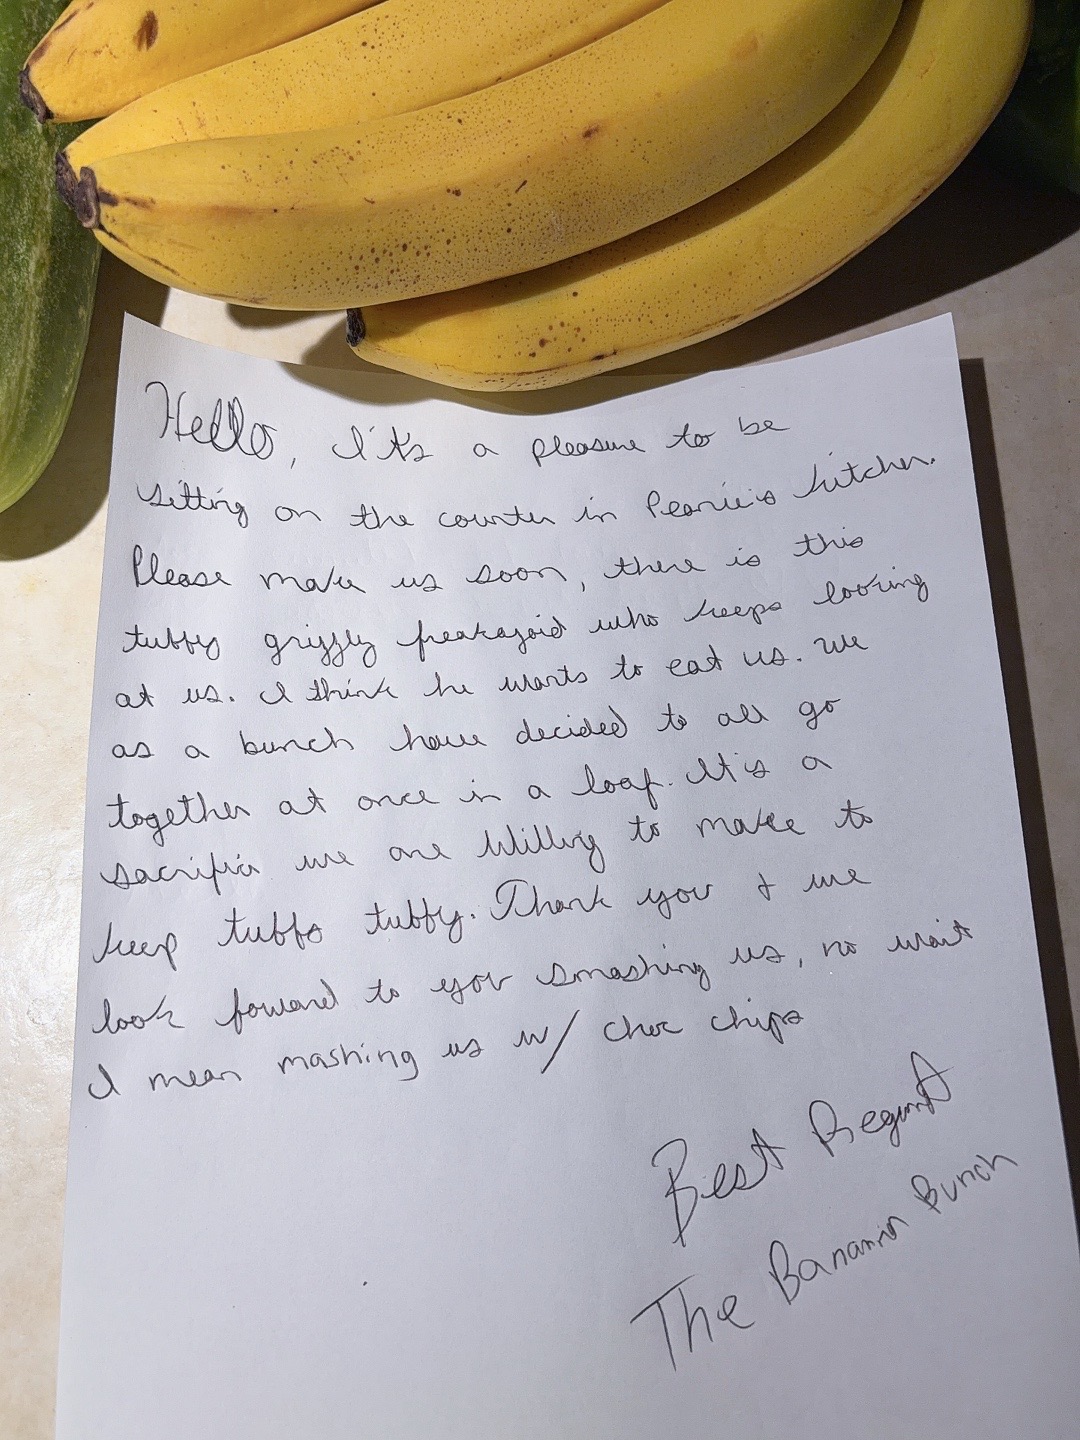 Hello, It's a pleasure to be
sitting on the counter in Peanie's kitchen.
Please make us soon, there is this
tubby grizzly freakazoid who keeps looking
at us. I think he wants to eat us. we
as a bunch have decided to all go
together at once in a loaf. It's a
sacrifice we are willing to make to
keep tubbs tubby. Thank you & we
look foward to you smashing us, no wait
I mean mashing us w/ choc chips
Best Regards
The Banana Bunch